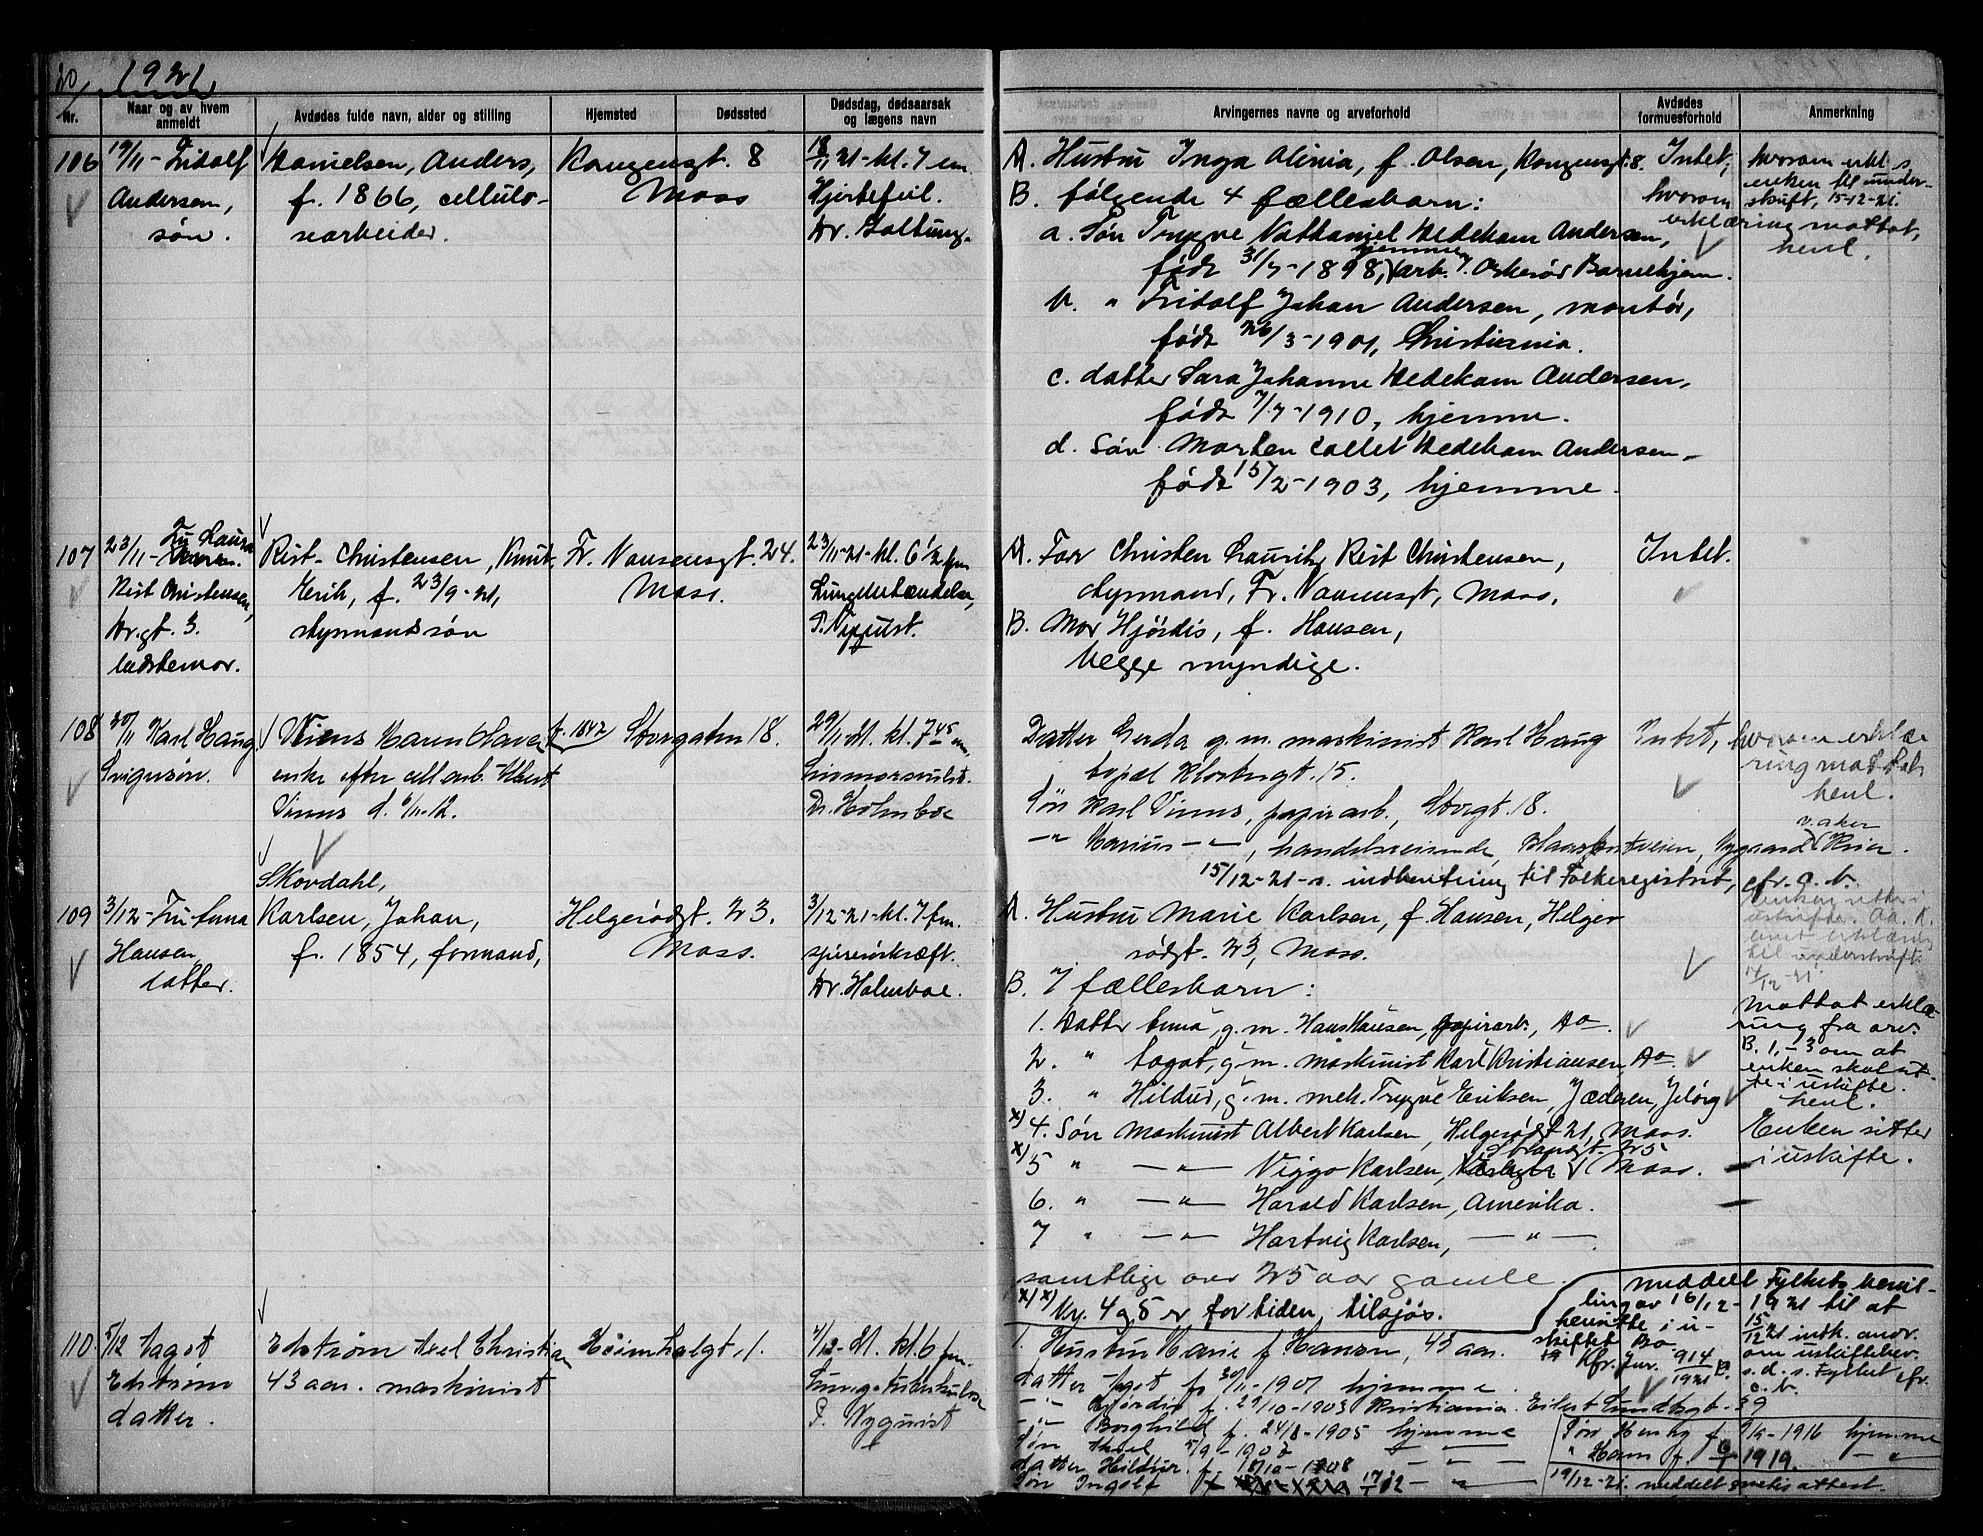 20
1921
Nr.
Naar og av hvem anmeldt
Avdødes fulde navn, alder og stilling
Hjemsted
Dødssted
Dødsdag, dødsaarsak og lægens navn
Arvingernes navne og arveforhold
Avdødes formuesforhold
Anmerkning
106
19/11 - Fridolf
Andersen,
søn.
Danielsen, Anders,
f. 1866, cellulo-
searbeider.
Kongensgt. 8
Moss
18/11 21 - kl. 7 em.
Hjertefeil.
Dr. Saltung.
A. Hustru Inga Olinia, f. Olsen, Kongensgt. 8.
B. følgende 4 fællesbarn:
a. Søn Trygve Nathaniel Dedekam Andersen,
hjemme,
født 31/7-1898, arb. Orkerød Barnehjem.
b. " Fridolf Johan Andersen, montør,
født 26/3-1901, Christiania.
c. datter Sara Johanne Dedekam Andersen,
født 7/7-1910, hjemme.
d. Søn Morten Collet Dedekam Andersen,
født 15/2-1903, hjemme.
Intet,
hvorom
erklæring mottat,
hvorom erkl. s.
enken til under-
skrift, 15-12-21.
henl.
107
23/11 - Fru Laura
Rist Christensen,
Dr.gt. 3.
bedstemor.
Rist-Christensen, Knut
Erik, f. 23/9-21,
styrmandssøn
Fr. Nansensgt. 24.
Moss.
23/11-21-kl. 6 1/2 fm
Lungebetændelse,
P. Nyquist.
A. Far Christen Lauritz Rist Christensen,
styrmand, Fr. Nansensgt, Moss.
B. Mor Hjørdis, f. Hansen,
begge myndige.
Intet.
108
30/11 Karl Haug
Svigersøn.
Vinns Karen Olava f. 1842
enke efter cell.arb.
Vinns d. 6/11-12.
Storgaten 18.
29/11-21. kl. 7 45 em.
Dr. Holmboe
Datter Gerda g.m. maskinist Karl Haug
bopæl Klostergt. 15.
Søn Karl Vinns, papirarb., Storgt. 18.
-"- Marius -"-, handelsreisende, Nygaard, Kria.
v. aker
15/12-21-s. indberetning til Folkeregistret, cfr. c.b.
Intet, hvorom erklæ-
ring mottat,
henl.
109
3/12 - Fru Anna
Hansen,
datter.
Skovdahl,
Karlsen, Johan,
f. 1854, formand,
Helgerødgt. 23.
Moss.
3/12-21-kl. 7 fm.
spiserørkræft.
Dr. Holmboe.
A. Hustru Marie Karlsen, f. Hansen, Helge-
rødgt. 23, Moss.
B. 7 fællesbarn:
1. Datter Anna, g.m. Hans Hansen, papirarb., do.
2. " Aagot, g.m. maskinist Karl Kristiansen, do.
3. " Hildur, g.m. mek. Trygve Eriksen, Jæderen, Jeløy
x) 4. Søn maskinist Albert Karlsen, Helgerødgt 21, Moss.
x) 5 " -"- Viggo Karlsen, Strandgt. 25 Moss.
6. " -"- Harald Karlsen, Amerika.
7 " -"- Hartvig Karlsen, -"-
samtlige over 25 aar gamle.
x) x) Nr. 4 og 5 er for tiden tilsjøs.
til underskrift
17/12-21.
Mottat erklæ-
ring fra arv.
B. 1-3 om at
enken skal sit-
te i uskifte.
henl.
Enken sitter
i uskifte.
110
5/12 Aagot
Edstrøm
datter.
Edstrøm Axel Christian
43 aar. maskinist
Heimdalgt. 1.
4/12-21. kl. 6 fm.
Lungetuberkulose
P. Nyquist
1. Hustru Marie f. Hansen, 43 aar.
datter Aagot f. 30/11-1901 hjemme.
-"- Hjørdis f. 29/10-1903 Kristiania. Eilert Sundtsgt. 39
-"- Borghild f. 24/8-1905 hjemme
Søn Axel 5/9-1907 -"-
datter Hildur f. 18/10-1908 -"-
Søn Ingolf f. 17/1 12 -"-
Søn Henry f. 9/9-1916 hjemme
" Hans f. 1919. -"-
19/12-21. meddelt gratis attest.
meddelt Fylkets bevil-
ling av 16/12-1921 til at
hensitte i u-
skiftet Bo
Kfr. Jur. 914/1921 B.
15/12 21 indk. andr.
om uskiftebev.
s.d. s. Fylket cfr.
c.b.